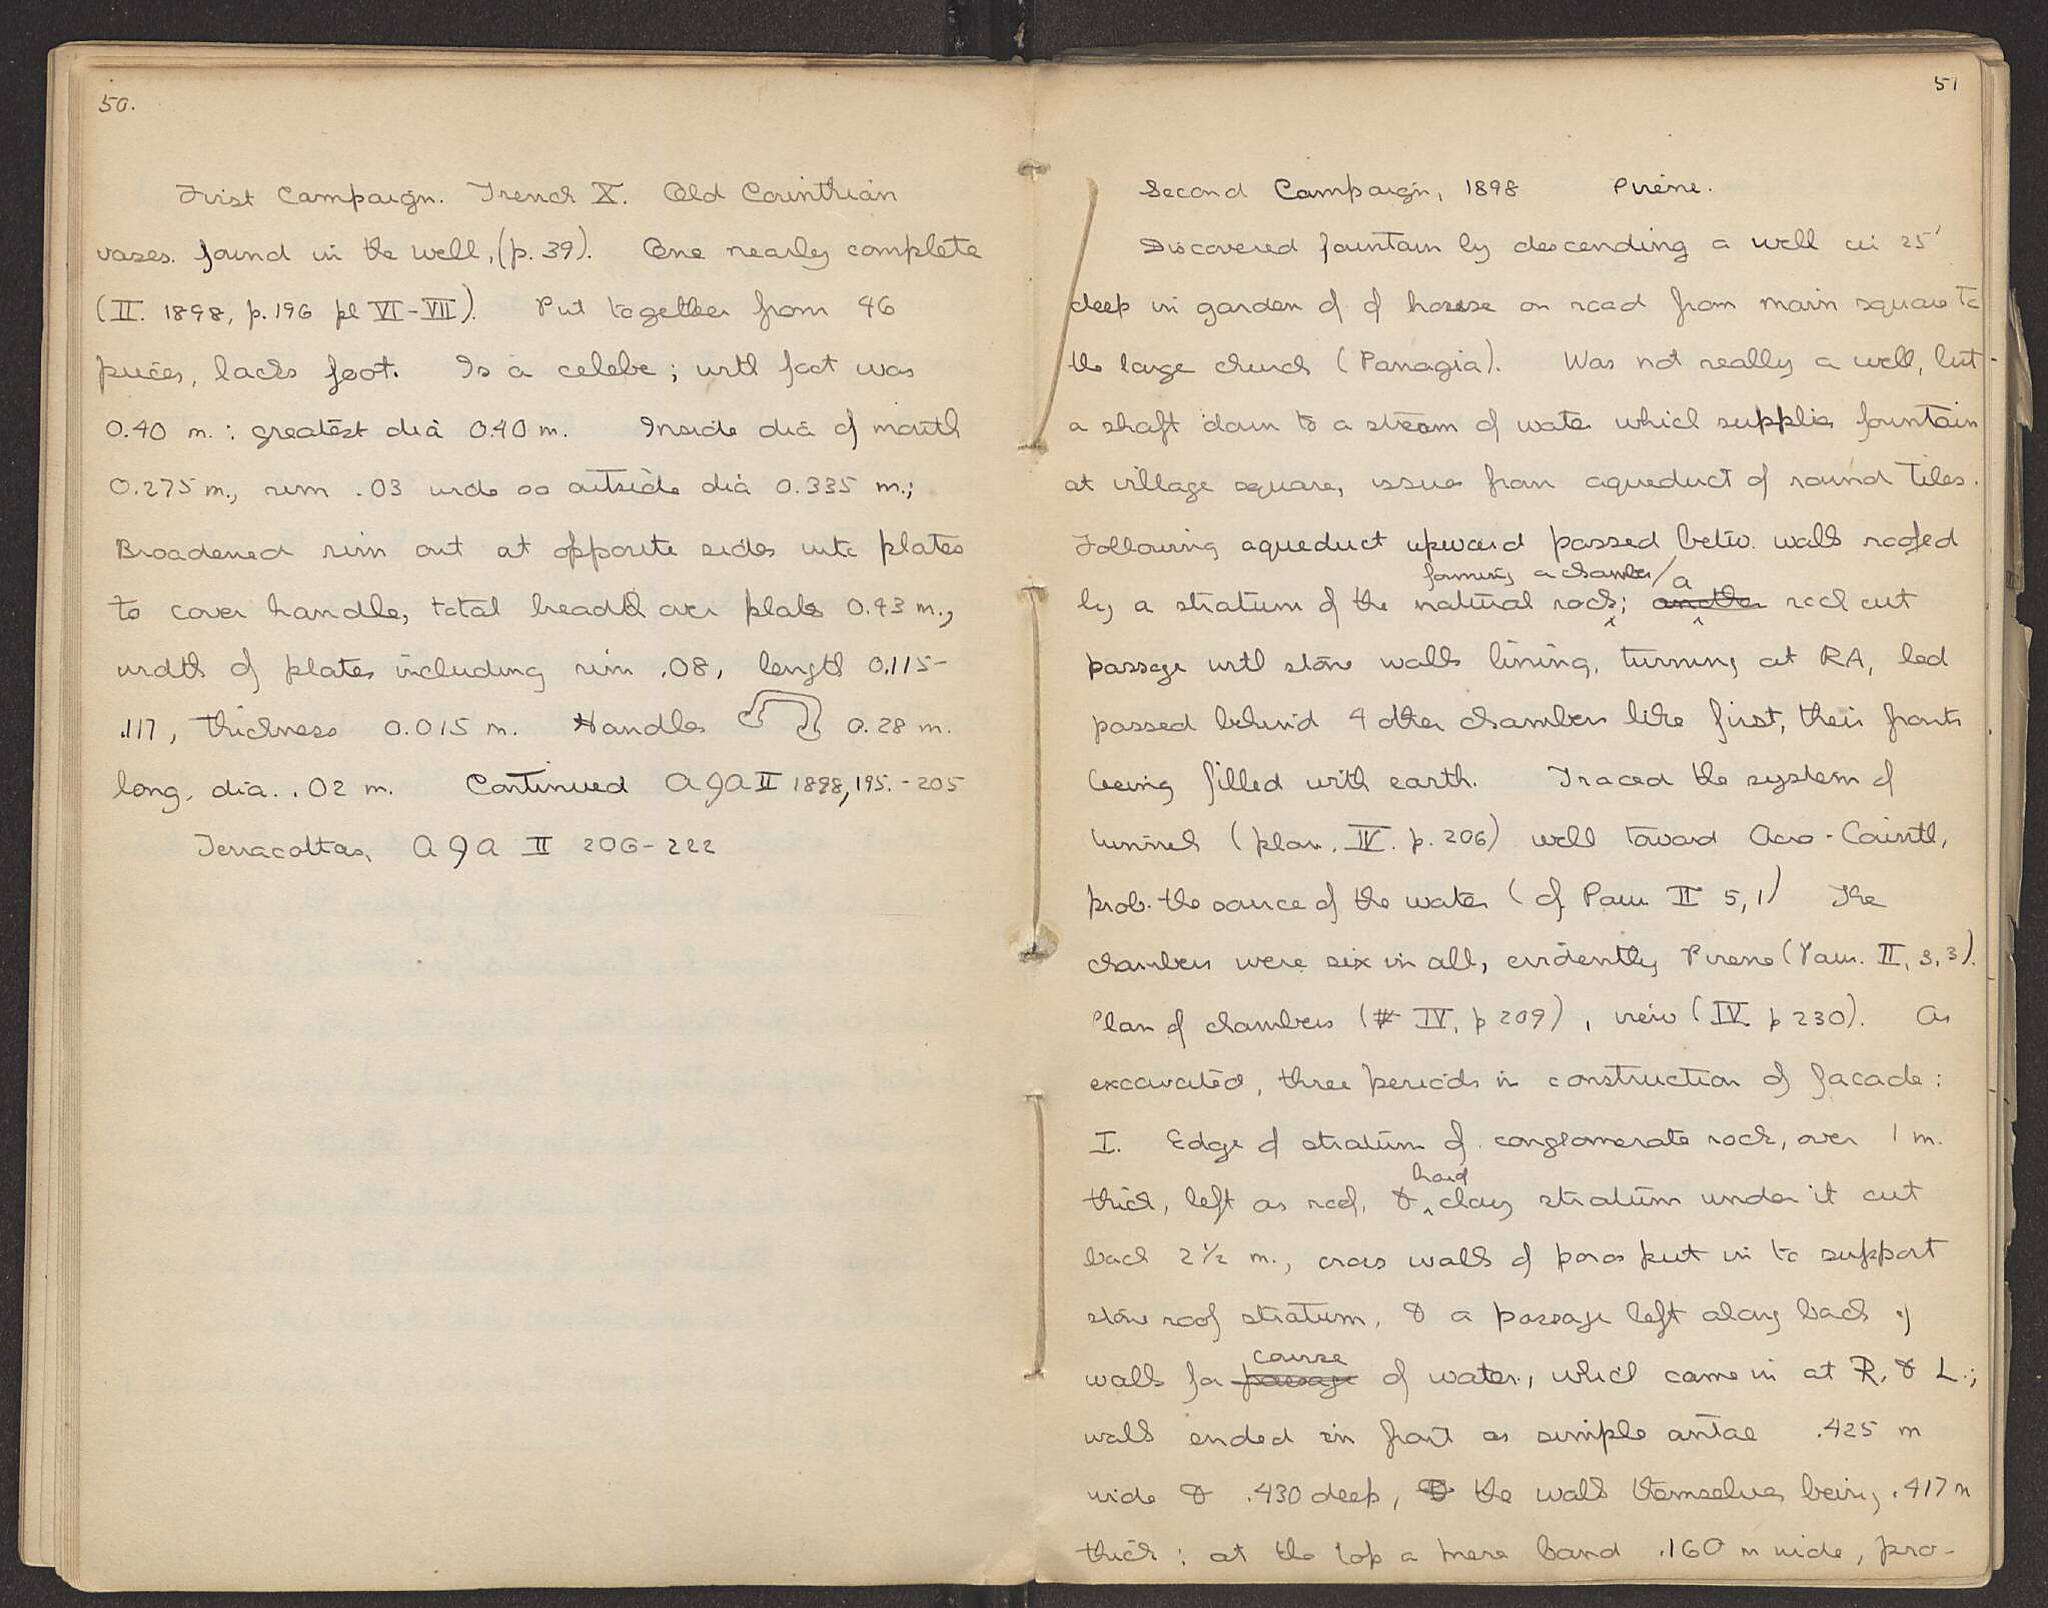 50.
First Campaign. Trench X. Old Corinthian
vases found in the well, (p. 39). One nearly complete
(II. 1898, p. 196 pl VI-VII). Put together from 46
pieces, lacks foot. Is a celebe; with foot was
0.40 m.: greatest dia 0.40 m. Inside dia of mouth
0.275 m., rim .03 wide so outside dia 0.335 m.;
Broadened rim out at opposite sides into plates
to cover handle, total breadth over plates 0.43 m.,
width of plates including rim .08, length 0.115-
.117, thickness 0.015 m. Handles 0.28 m.
long, dia. .02 m. Continued AJA II 1898, 195.-205
Terracottas, AJA II 206-222
51
Second Campaign, 1898 Pirene.
Discovered fountain by descending a well 25'
deep in garden of of house on road from main square to
the large church (Panagia). Was not really a well, but
a shaft down to a stream of water which supplies fountain
at village square, issues from aqueduct of round tiles.
Following aqueduct upward passed betw. walls roofed
forming a chamber/ a
by a stratum of the natural rock; another rock cut
passage with stone walls lining, turning at RA, led
passed behind 4 other chambers like first, their fronts
being filled with earth. Traced the system of
tunnels (plan, IV. p. 206) well toward Acro-Corinth,
prob. the source of the water (cf Paus II 5,1) The
chambers were six in all, evidently Pirene (Paus. II, 3, 3).
Plan of chambers (# IV, p 209), view (IV p 230). As
excavated, three periods in construction of facade:
I. Edge of stratum of conglomerate rock, over 1 m.
hard
thick, left as roof, & clay stratum under it cut
back 2 1/2 m., cross walls of poros put in to support
stone roof stratum, & a passage left along back of
course
walls for passage of water, which came in at R. & L.;
walls ended in front as simple antae .425 m
wide & .430 deep, the walls themselves being .417 m
thick; at the top a mere band .160 m wide, pro-